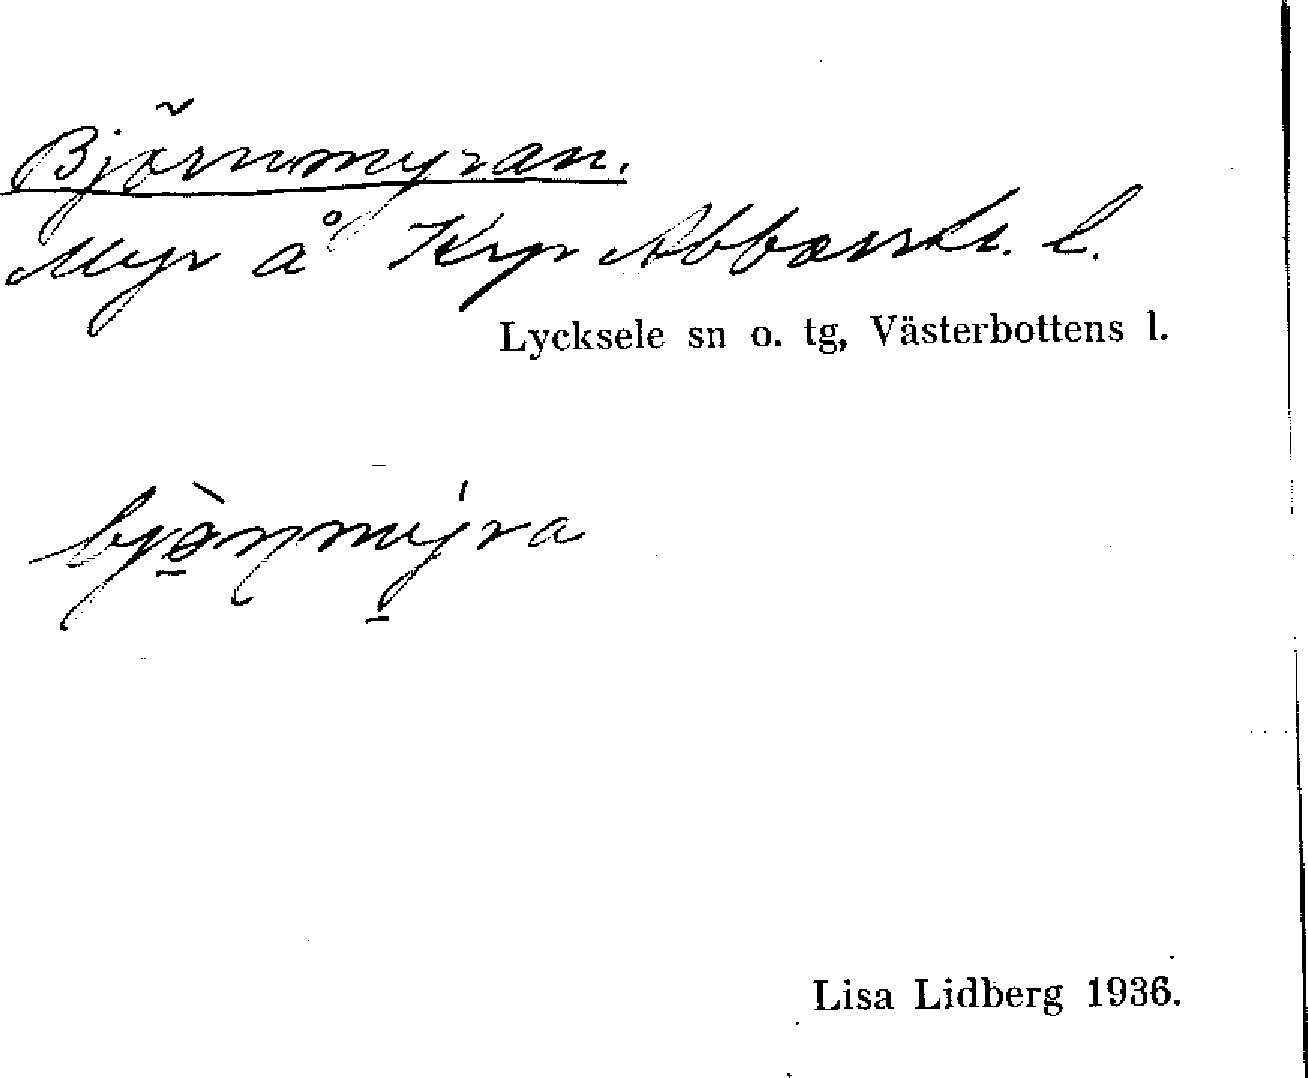 Björnmyran.
Myr å Krp Abborrtr. l.
Lycksele sn o. tg, Västerbottens l.
bjò̱ṇmý̱ra
Lisa Lidberg 1936.